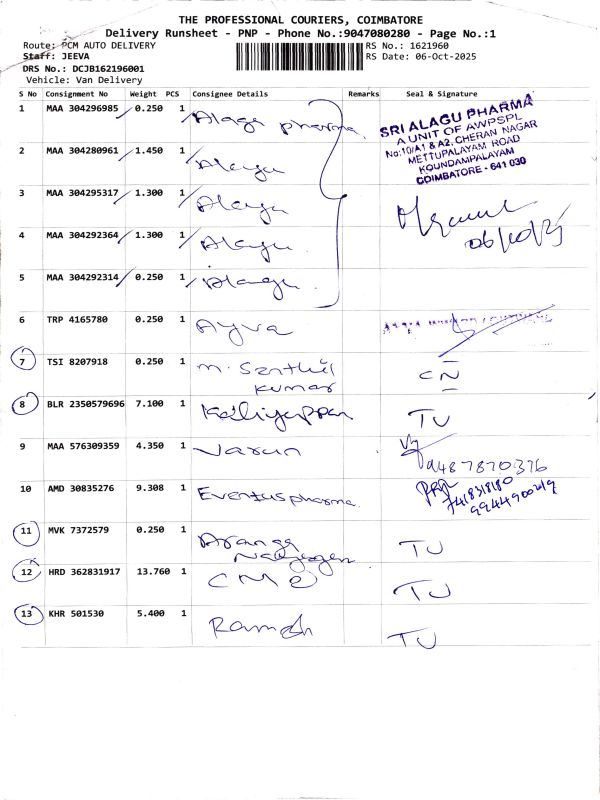 THE PROFESSIONAL COURIERS, COIMBATORE
Delivery Runsheet - PNP - Phone No.:9047080280 - Page No.:1
Route: PCM AUTO DELIVERY
RS No.: 1621960
Staff: JEEVA
RS Date: 06-Oct-2025
DRS No.: DCJB162196001
Vehicle: Van Delivery
S No Consignment No Weight PCS Consignee Details Remarks Seal & Signature
1 MAA 304296985 0.250 1 Alagu pharma
SRI ALAGU PHARMA
A UNIT OF AWPSPL
No:10/A1 & A2, CHERAN NAGAR
METTUPALAYAM ROAD
KOUNDAMPALAYAM
COIMBATORE - 641 030
2 MAA 304280961 1.450 1 Alagu
3 MAA 304295317 1.300 1 Alagu
06/10/25
4 MAA 304292364 1.300 1 Alagu
5 MAA 304292314 0.250 1 Alagu
6 TRP 4165780 0.250 1 Ayva
7 TSI 8207918 0.250 1 M. Senthil
Kumar
CN
8 BLR 2350579696 7.100 1 Kaliyappan TU
9 MAA 576309359 4.350 1 Varun
9487870376
10 AMD 30835276 9.308 1 Eventus pharma
7418318180
11 MVK 7372579 0.250 1 TU
12 HRD 362831917 13.760 1 TU
13 KHR 501530 5.400 1 Ramesh TU